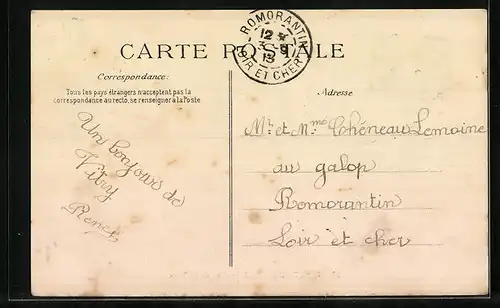 ROMORANTIN
12 *
3 - 9
13
LOIR ET CHER
CARTE POSTALE
Correspondance:
Tous les pays étrangers n'acceptent pas la
correspondance au recto, se renseigner à la Poste
Adresse
Un bonjour de
Vitry
Mr et Mme Chéneau Lemaine
au galop
Romorantin
Loir et cher